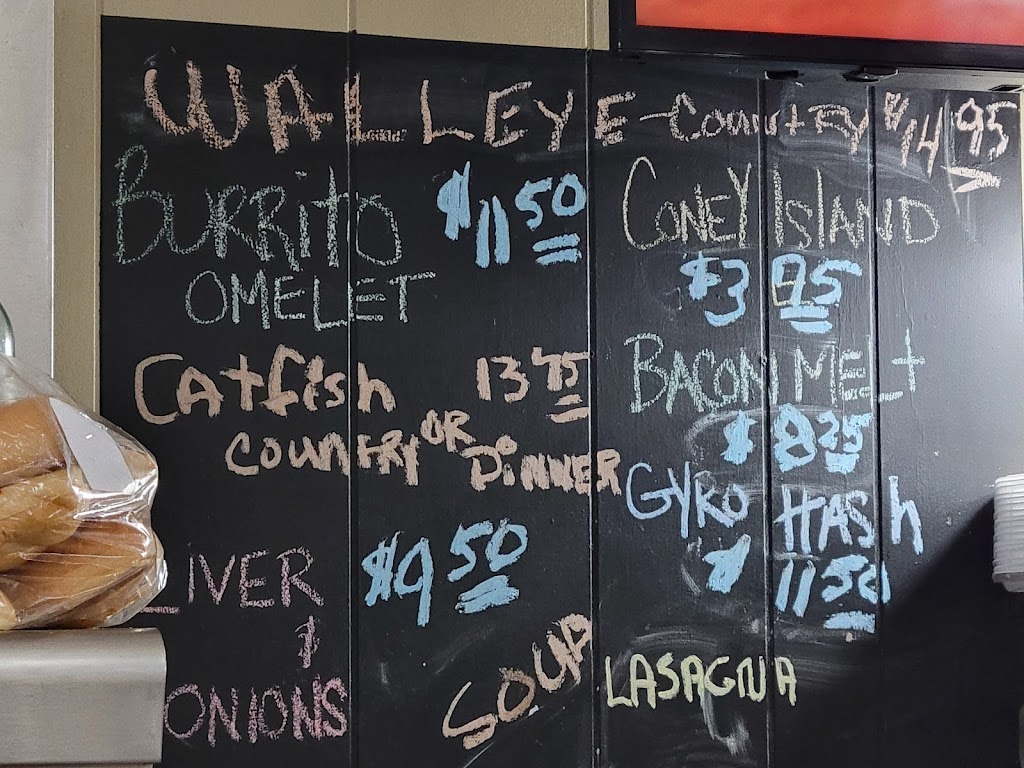 WALLEYE-Country $14.95
BURRITO $11.50
OMELET
CATfish 13.75
COUNTRY OR DINNER
LIVER $9.50
&
ONIONS
SOUP
CONEY ISLAND
$3.95
BACON MELt
$8.25
GYRO HASh
$11.50
LASAGNA